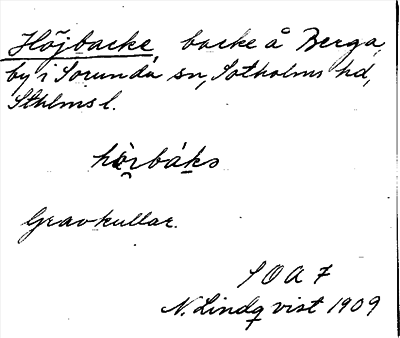 Höjbacke backe å Berga
by i Sorunda sn, Sotholms hd,
Sthlms l.
Gravkullar.
S O A 7
N. Lindqvist 1909